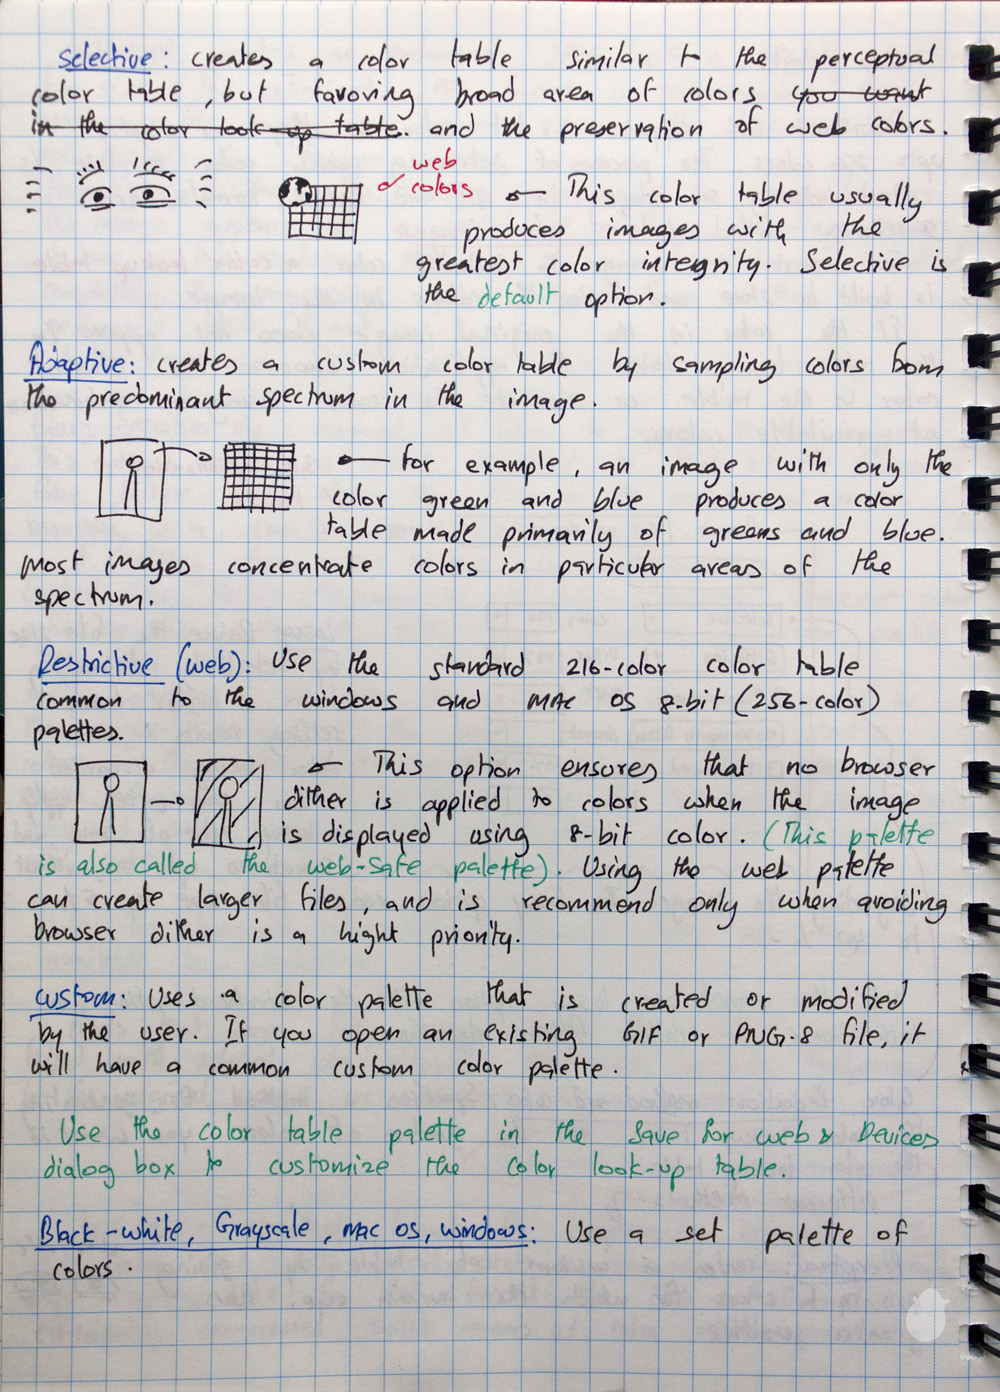 Selective: creates a color table similar to the perceptual
color table, but favoring broad area of colors you want
in the color look-up table. and the preservation of web colors.
web
colors
This color table usually
produces images with the
greatest color integrity. Selective is
the default option.
Adaptive: creates a custom color table by sampling colors from
the predominant spectrum in the image.
for example, an image with only the
color green and blue produces a color
table made primarily of greens and blue.
most images concentrate colors in particular areas of the
spectrum.
Restrictive (web): Use the standard 216-color color table
common to the windows and MAC OS 8-bit (256-color)
palettes.
This option ensures that no browser
dither is applied to colors when the image
is displayed using 8-bit color. (This palette
is also called the web-safe palette). Using the web palette
can create larger files, and is recommend only when avoiding
browser dither is a hight priority.
custom: Uses a color palette that is created or modified
by the user. If you open an existing GIF or PNG-8 file, it
will have a common custom color palette.
Use the color table palette in the Save for web & Devices
dialog box to customize the color look-up table.
Black-white, Grayscale, mac os, windows: Use a set palette of
colors.